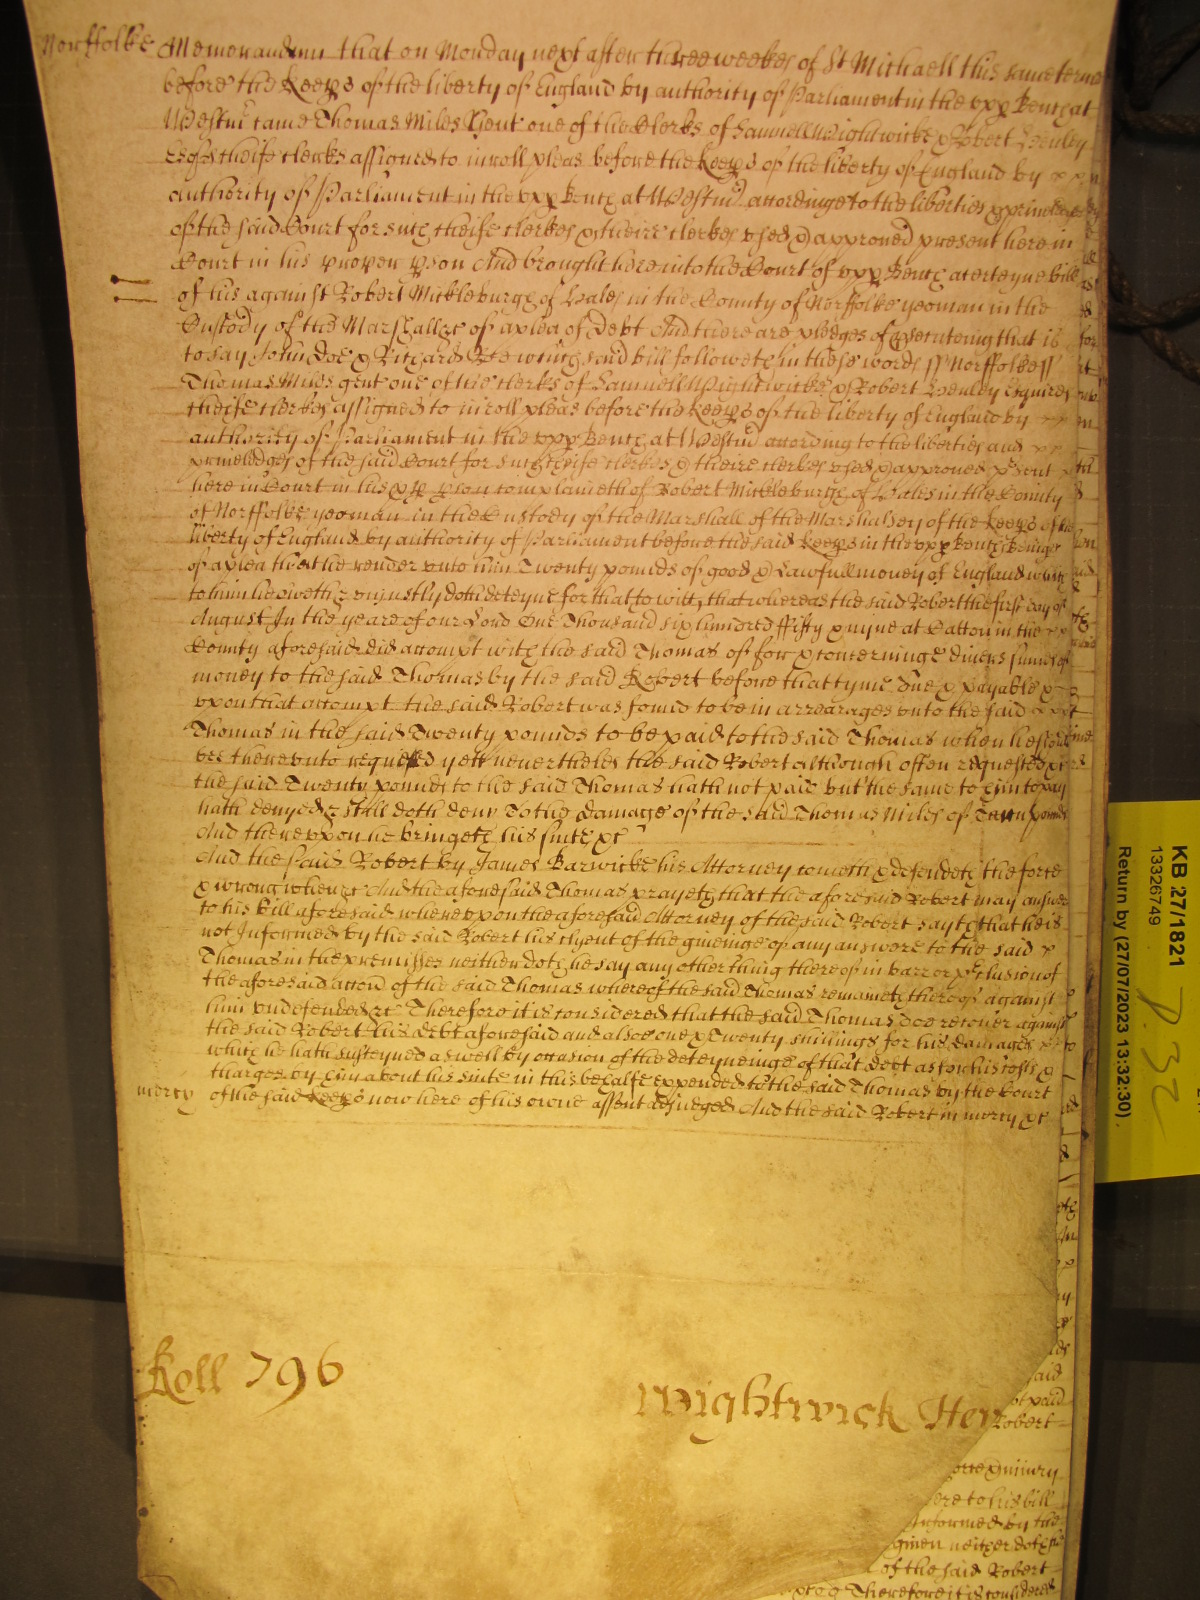 Norffolke Memorandum that on Monday next after three weekes of St Michaell this same terme
before the keeps of the liberty of England by authority of Parliament in the vpp Bench at
Westmr came Thomas Miles Gent one of the Clerks of Samuell Wightwicke & Robert Henley
Esqrs cheife clerks assigned to inroll pleas before the keeps of the liberty of England by
authority of Parliament in the vpp Bench at Westmr accordinge to the liberties & priviledges
of the said Court for such cheife clerkes & theire clerkes vsed & approved present here in
Court in his proper pson And brought here into the Court of vpp Bench a certeyne bill
of his against Robert Mickleburgh of Hales in the County of Norffolke yeoman in the
Custody of the Marshall &c of a plea of Debt And there are pledges of psecuteing that is
to say John Doe & Richard Roe which said bill followeth in these words ss Norffolke ss
Thomas Miles gent one of the clerks of Samuell Wightwicke & Robert Henley Esquires
cheife clerkes assigned to inroll pleas before the keeps of the liberty of England by
authority of Parliament in the vpp Bench at Westmr according to the liberties and
priviledges of the said Court for such cheife clerkes & theire clerkes vsed & approved psent
here in Court in his pson complaineth of Robert Mickleburgh of Hales in the County
of Norffolke yeoman in the Custody of the Marshall of the Marshalsey of the keeps of the
liberty of England by authority of Parliament before the said keeps in the vpp Bench being
of a plea that he render vnto him Twenty pounds of good & Lawfull money of England which
to him he oweth & vniustly doth deteyne for that to witt, that whereas the said Robert the first day of
August In the yeare of our Lord One Thousand six hundred ffifty & nyne at Catton in the
County aforesaid did accompt with the said Thomas of for & concerninge divers summes of
money to the said Thomas by the said Robert before that tyme due & payable &
vpon that accompt the said Robert was found to be in arrearages vnto the said
Thomas in the said Twenty pounds to be paid to the said Thomas when he should
bee therevnto requested yett neverthelesse the said Robert although often requested &c
the said Twenty pounds to the said Thomas hath not paid but the same to him to pay
hath denyed & still doth deny To the damage of the said Thomas Miles of Tenn pounds
And therevpon he bringeth his suite &c
And the said Robert by James Barwicke his Attorney cometh & defendeth the force
& wrong when &c And the aforesaid Thomas prayeth that the aforesaid Robert may answer
to his bill aforesaid wherevpon the aforesaid Attorney of the said Robert sayth that he is
not Informed by the said Robert his clyent of the giveinge of any answere to the said
Thomas in the premisses neither doth he say any other thing thereof in barr or pclusion of
the aforesaid accon of the said Thomas whereof the said Thomas remaineth thereof against
him vndefended &c Therefore it is considered that the said Thomas doe recover against
the said Robert his debt aforesaid and alsoe one & Twenty shillings for his damages
which he hath susteyned as well by occasion of the deteyneinge of that debt as for his costs &
charges by him about his suite in this behalfe expended to the said Thomas by the Court
mercy of the said keeps now here of his owne assent adjudged And the said Robert in mercy &c
Roll 796
Wightwick Hen
said
not paid
Robert
force & iniury
here to his bill
Informed by the
given neither doth he
of the said Robert
Therefore it is considered
KB 27/1821
13326749
Return by (27/07/2023 13:32:30)
P. 32